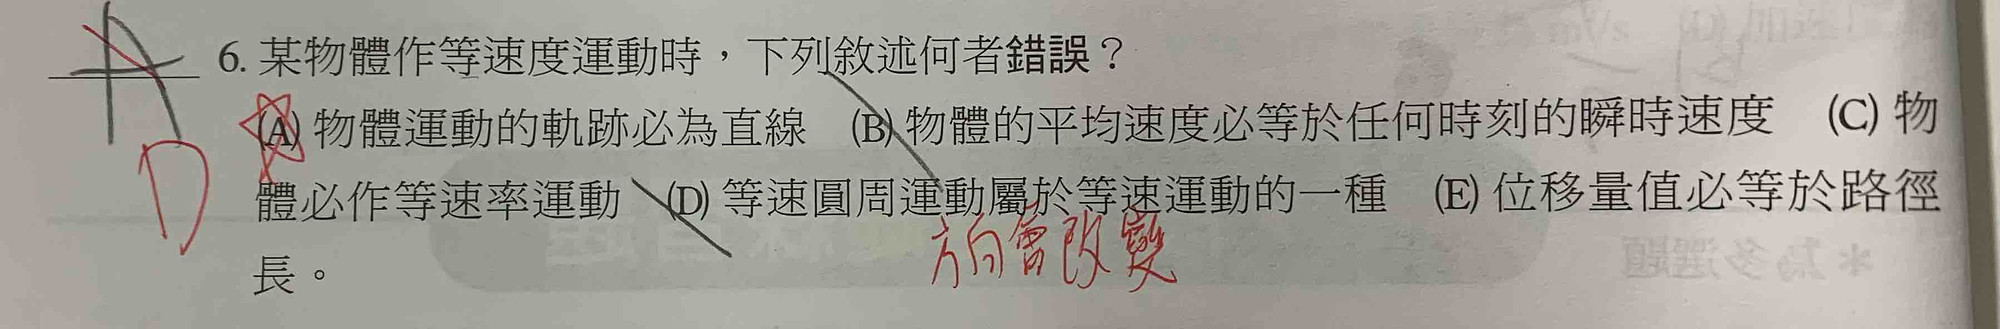 A
6. 某物體作等速度運動時，下列敘述何者錯誤？
(A) 物體運動的軌跡必為直線 (B) 物體的平均速度必等於任何時刻的瞬時速度 (C) 物
D
體必作等速率運動 (D) 等速圓周運動屬於等速運動的一種 (E) 位移量值必等於路徑
方向會改變
長。